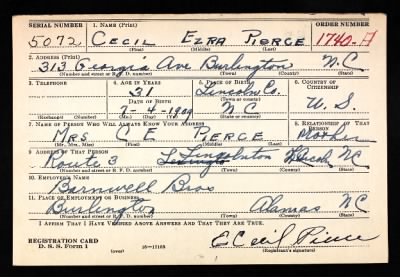 SERIAL NUMBER 1. NAME (Print) ORDER NUMBER
5072 CECIL EZRA PIERCE 1740-A
(First) (Middle) (Last)
2. ADDRESS (Print)
313 Georgia Ave Burlington N.C.
(Number and street or R. F. D. number) (Town) (County) (State)
3. TELEPHONE 4. AGE IN YEARS 5. PLACE OF BIRTH 6. COUNTRY OF CITIZENSHIP
31 Lincoln Co.
DATE OF BIRTH (Town or county)
7-4-1909 N C U. S.
(Exchange) (Number) (Mo.) (Day) (Yr.) (State or country)
7. NAME OF PERSON WHO WILL ALWAYS KNOW YOUR ADDRESS 8. RELATIONSHIP OF THAT PERSON
MRS C E PIERCE Mother
(Mr., Mrs., Miss) (First) (Middle) (Last)
9. ADDRESS OF THAT PERSON
Route 3 Lincolnton NC
(Number and street or R. F. D. number) (Town) (County) (State)
10. EMPLOYER'S NAME
Barnwell Bros
11. PLACE OF EMPLOYMENT OR BUSINESS
Burlington Alamas NC
(Number and street or R. F. D. number) (Town) (County) (State)
I AFFIRM THAT I HAVE VERIFIED ABOVE ANSWERS AND THAT THEY ARE TRUE.
REGISTRATION CARD
D. S. S. Form 1 16-17105 E Cecil Pierce
(Registrant's signature)